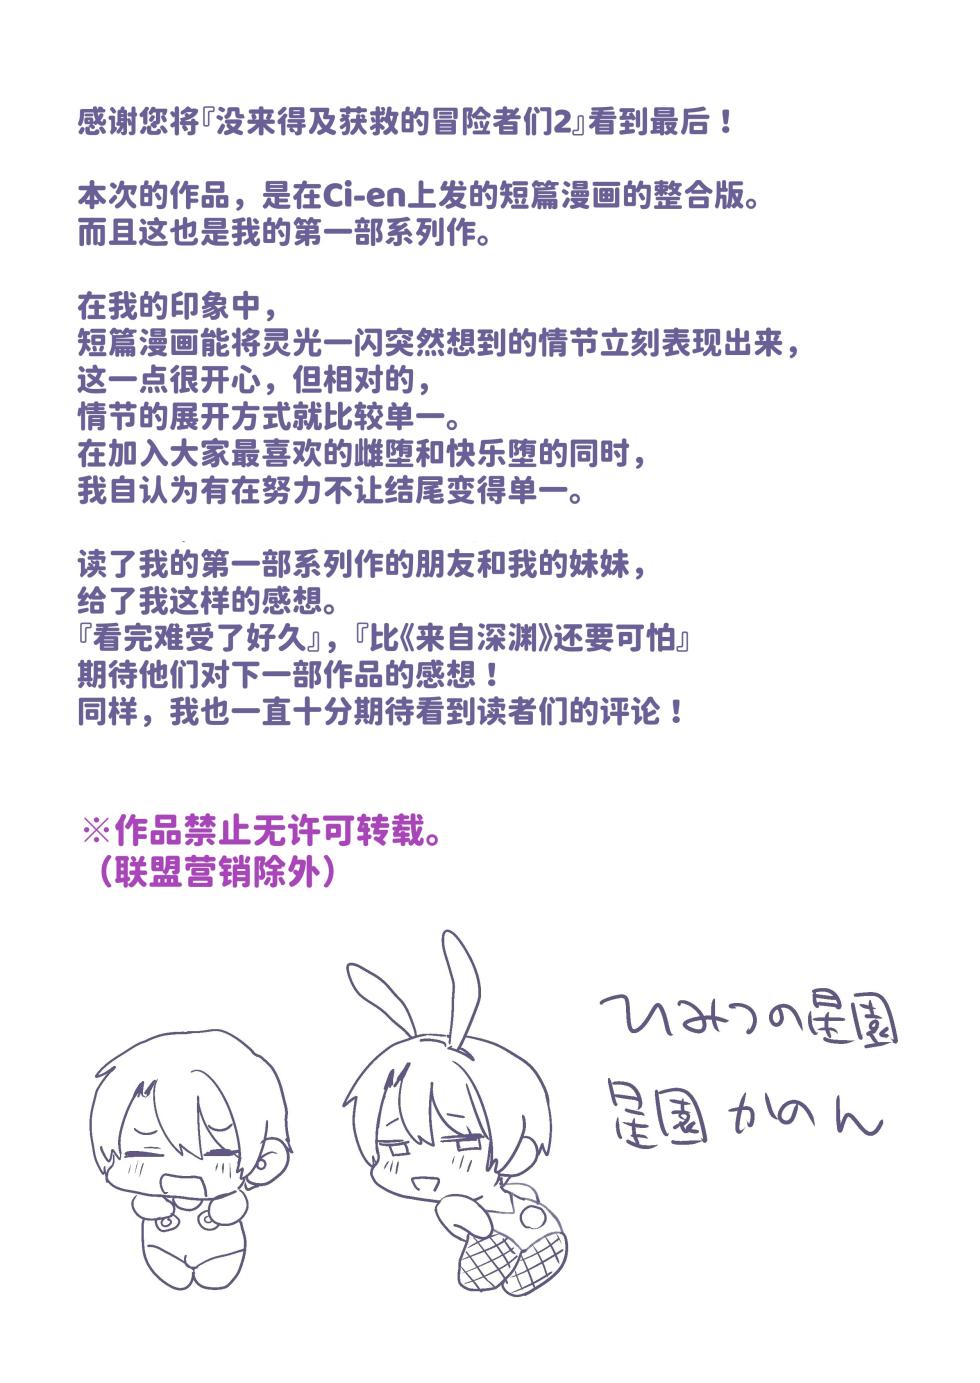 感谢您将『没来得及获救的冒险者们2』看到最后！
本次的作品，是在Ci-en上发的短篇漫画的整合版。
而且这也是我的第一部系列作。
在我的印象中，
短篇漫画能将灵光一闪突然想到的情节立刻表现出来，
这一点很开心，但相对的，
情节的展开方式就比较单一。
在加入大家最喜欢的雌堕和快乐堕的同时，
我自认为有在努力不让结尾变得单一。
读了我的第一部系列作的朋友和我的妹妹，
给了我这样的感想。
『看完难受了好久』，『比《来自深渊》还要可怕』
期待他们对下一部作品的感想！
同样，我也一直十分期待看到读者们的评论！
※作品禁止无许可转载。
（联盟营销除外）
ひみつの星園
星園かのん